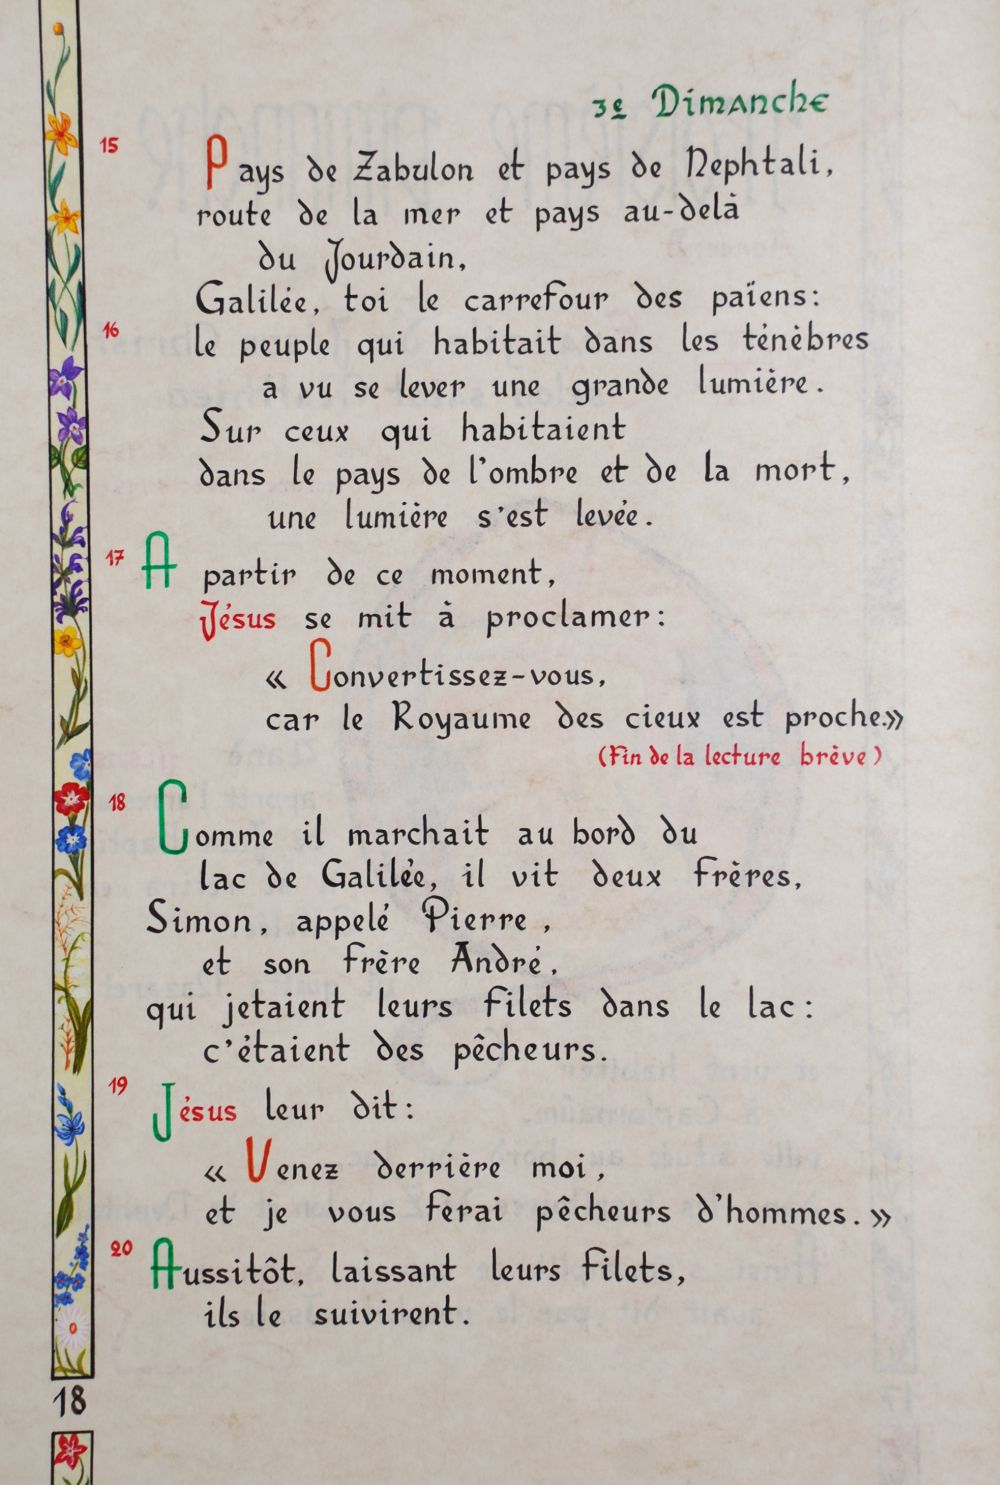 3e Dimanche
15 Pays de Zabulon et pays de Nephtali,
route de la mer et pays au-delà
du Jourdain,
Galilée, toi le carrefour des païens:
16 le peuple qui habitait dans les ténèbres
a vu se lever une grande lumière.
Sur ceux qui habitaient
dans le pays de l'ombre et de la mort,
une lumière s'est levée.
17 A partir de ce moment,
Jésus se mit à proclamer:
« Convertissez-vous,
car le Royaume des cieux est proche.»
(Fin de la lecture brève)
18 Comme il marchait au bord du
lac de Galilée, il vit deux frères,
Simon, appelé Pierre,
et son frère André,
qui jetaient leurs filets dans le lac:
c'étaient des pêcheurs.
19 Jésus leur dit:
« Venez derrière moi,
et je vous ferai pêcheurs d'hommes. »
20 Aussitôt, laissant leurs filets,
ils le suivirent.
18